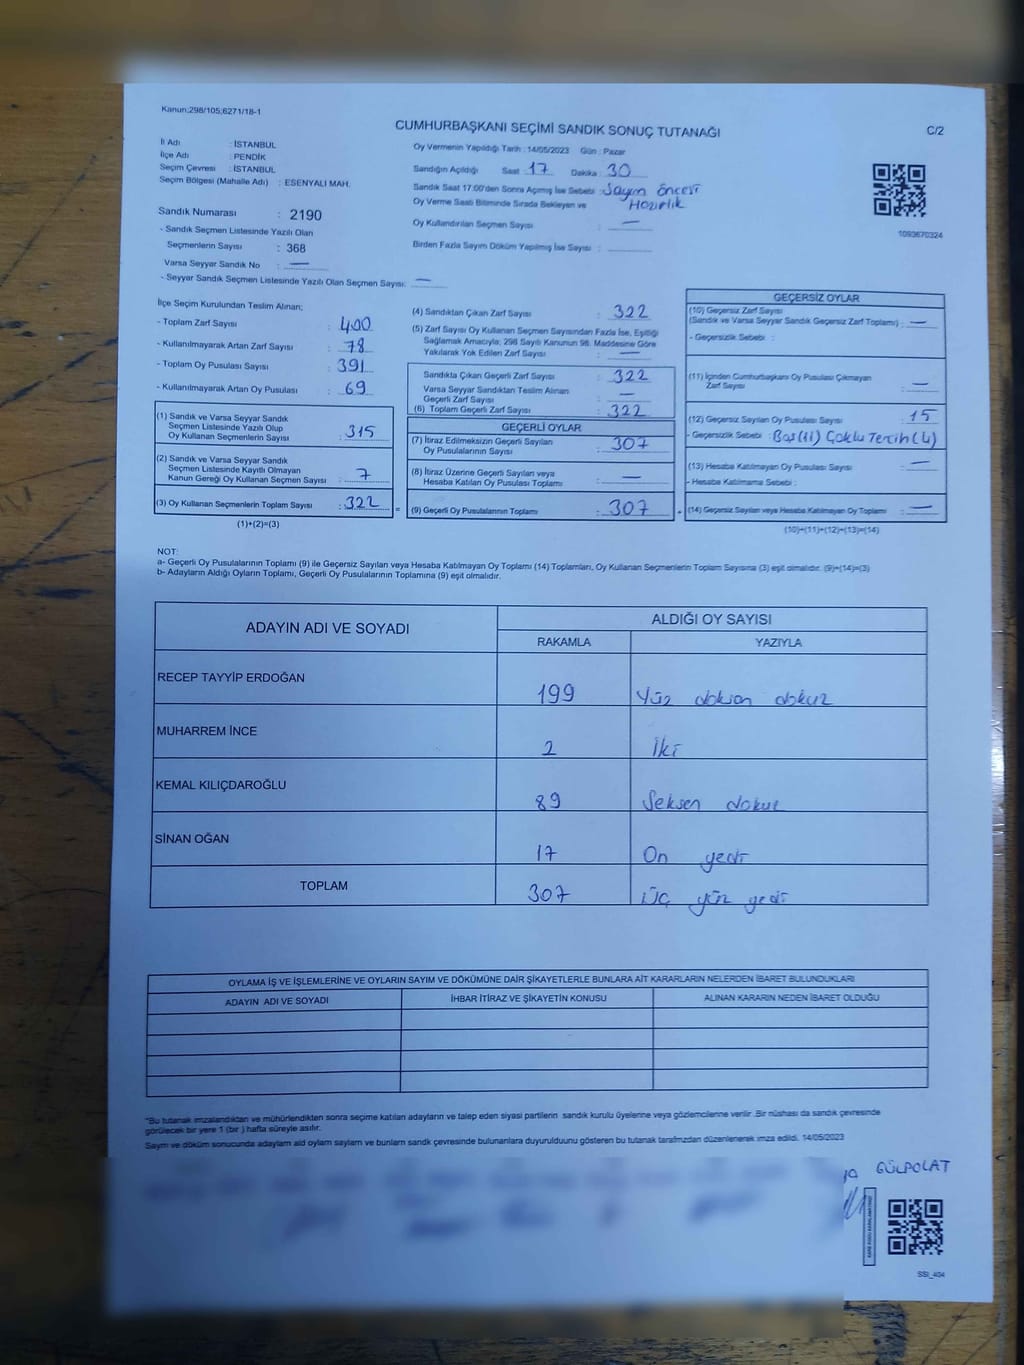 Kanun;298/105;6271/18-1
CUMHURBAŞKANI SEÇİMİ SANDIK SONUÇ TUTANAĞI
C/2
İl Adı : İSTANBUL
İlçe Adı : PENDİK
Seçim Çevresi : İSTANBUL
Seçim Bölgesi (Mahalle Adı) : ESENYALI MAH.
Sandık Numarası : 2190
- Sandık Seçmen Listesinde Yazılı Olan
Seçmenlerin Sayısı : 368
Varsa Seyyar Sandık No : —
- Seyyar Sandık Seçmen Listesinde Yazılı Olan Seçmen Sayısı: —
Oy Vermenin Yapıldığı Tarih : 14/05/2023 Gün : Pazar
Sandığın Açıldığı Saat 17 Dakika : 30
Sandık Saat 17:00'den Sonra Açımış İse Sebebi : Sayım öncesi
Oy Verme Saati Bitiminde Sırada Bekleyen ve Hazırlık
Oy Kullandırılan Seçmen Sayısı : —
Birden Fazla Sayım Döküm Yapılmış İse Sayısı :
1093670324
İlçe Seçim Kurulundan Teslim Alınan;
- Toplam Zarf Sayısı : 400
- Kullanılmayarak Artan Zarf Sayısı : 78
- Toplam Oy Pusulası Sayısı : 391
- Kullanılmayarak Artan Oy Pusulası : 69
(1) Sandık ve Varsa Seyyar Sandık
Seçmen Listesinde Yazılı Olup
Oy Kullanan Seçmenlerin Sayısı : 315
(2) Sandık ve Varsa Seyyar Sandık
Seçmen Listesinde Kayıtlı Olmayan
Kanun Gereği Oy Kullanan Seçmen Sayısı : 7
(3) Oy Kullanan Seçmenlerin Toplam Sayısı : 322 =
(1)+(2)=(3)
(4) Sandıktan Çıkan Zarf Sayısı : 322
(5) Zarf Sayısı Oy Kullanan Seçmen Sayısından Fazla İse, Eşitliği
Sağlamak Amacıyla; 298 Sayılı Kanunun 98. Maddesine Göre
Yakılarak Yok Edilen Zarf Sayısı : —
Sandıkta Çıkan Geçerli Zarf Sayısı : 322
Varsa Seyyar Sandıktan Teslim Alınan
Geçerli Zarf Sayısı : —
(6) Toplam Geçerli Zarf Sayısı : 322
GEÇERLİ OYLAR
(7) İtiraz Edilmeksizin Geçerli Sayılan
Oy Pusulalarının Sayısı : 307
(8) İtiraz Üzerine Geçerli Sayılan veya
Hesaba Katılan Oy Pusulası Toplamı : —
(9) Geçerli Oy Pusulalarının Toplamı : 307 +
GEÇERSİZ OYLAR
(10) Geçersiz Zarf Sayısı
(Sandık ve Varsa Seyyar Sandık Geçersiz Zarf Toplamı) : —
- Geçersizlik Sebebi :
(11) İçinden Cumhurbaşkanı Oy Pusulası Çıkmayan
Zarf Sayısı : —
(12) Geçersiz Sayılan Oy Pusulası Sayısı : 15
- Geçersizlik Sebebi : Boş(11) Çoklu Tercih(4)
(13) Hesaba Katılmayan Oy Pusulası Sayısı : —
- Hesaba Katılmama Sebebi :
(14) Geçersiz Sayılan veya Hesaba Katılmayan Oy Toplamı : —
(10)+(11)+(12)+(13)=(14)
NOT:
a- Geçerli Oy Pusulalarının Toplamı (9) ile Geçersiz Sayılan veya Hesaba Katılmayan Oy Toplamı (14) Toplamları, Oy Kullanan Seçmenlerin Toplam Sayısına (3) eşit olmalıdır. (9)+(14)=(3)
b- Adayların Aldığı Oyların Toplamı, Geçerli Oy Pusulalarının Toplamına (9) eşit olmalıdır.
ADAYIN ADI VE SOYADI
ALDIĞI OY SAYISI
RAKAMLA YAZIYLA
RECEP TAYYİP ERDOĞAN 199 Yüz doksan dokuz
MUHARREM İNCE 2 İki
KEMAL KILIÇDAROĞLU 89 Seksen dokuz
SİNAN OĞAN 17 On yedi
TOPLAM 307 Üç yüz yedi
OYLAMA İŞ VE İŞLEMLERİNE VE OYLARIN SAYIM VE DÖKÜMÜNE DAİR ŞİKAYETLERLE BUNLARA AİT KARARLARIN NELERDEN İBARET BULUNDUKLARI
ADAYIN ADI VE SOYADI İHBAR İTİRAZ VE ŞİKAYETİN KONUSU ALINAN KARARIN NEDEN İBARET OLDUĞU
"Bu tutanak imzalandıktan ve mühürlendikten sonra seçime katılan adayların ve talep eden siyasi partilerin sandık kurulu üyelerine veya gözlemcilerine verilir .Bir nüshası da sandık çevresinde
görülecek bir yere 1 (bir ) hafta süreyle asılır.
Sayım ve döküm sonucunda adayların ald oyların sayların ve bunların sandk çevresinde bulunanlara duyurulduunu gösteren bu tutanak tarafmzdan düzenlenerek imza edildi. 14/05/2023
GÜLPOLAT
SSI_404